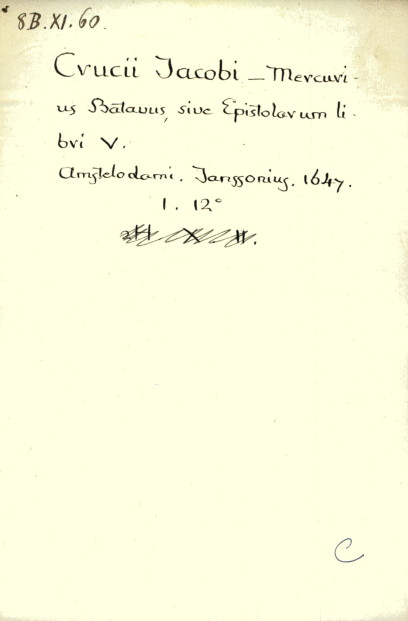 8B.XI.60.
Crucii Jacobi – Mercuri-
us Batavus, sive Epistolarum li-
bri V.
Amstelodami. Janssonius. 1647.
1. 12°
C